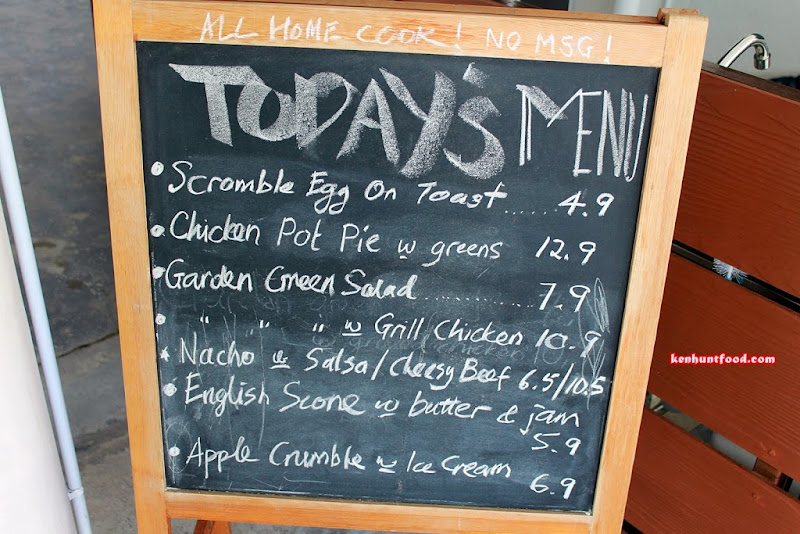 ALL HOME COOK! NO MSG!
TODAY'S MENU
• Scromble Egg On Toast ...... 4.9
• Chicken Pot Pie w greens 12.9
• Garden Green Salad .............. 7.9
• " " " w Grill Chicken 10.9
• Nacho w Salsa/Cheesy Beef 6.5/10.5
• English Scone w butter & jam
5.9
• Apple Crumble w Ice Cream
6.9
kenhuntfood.com